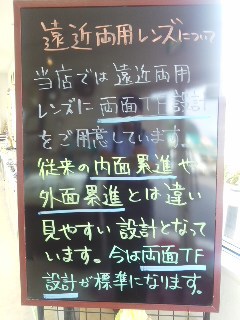 遠近両用レンズについて
当店では遠近両用
レンズに両面TF設計
をご用意しています。
従来の内面累進や
外面累進とは違い
見やすい設計となって
います。今は両面TF
設計が標準になります。